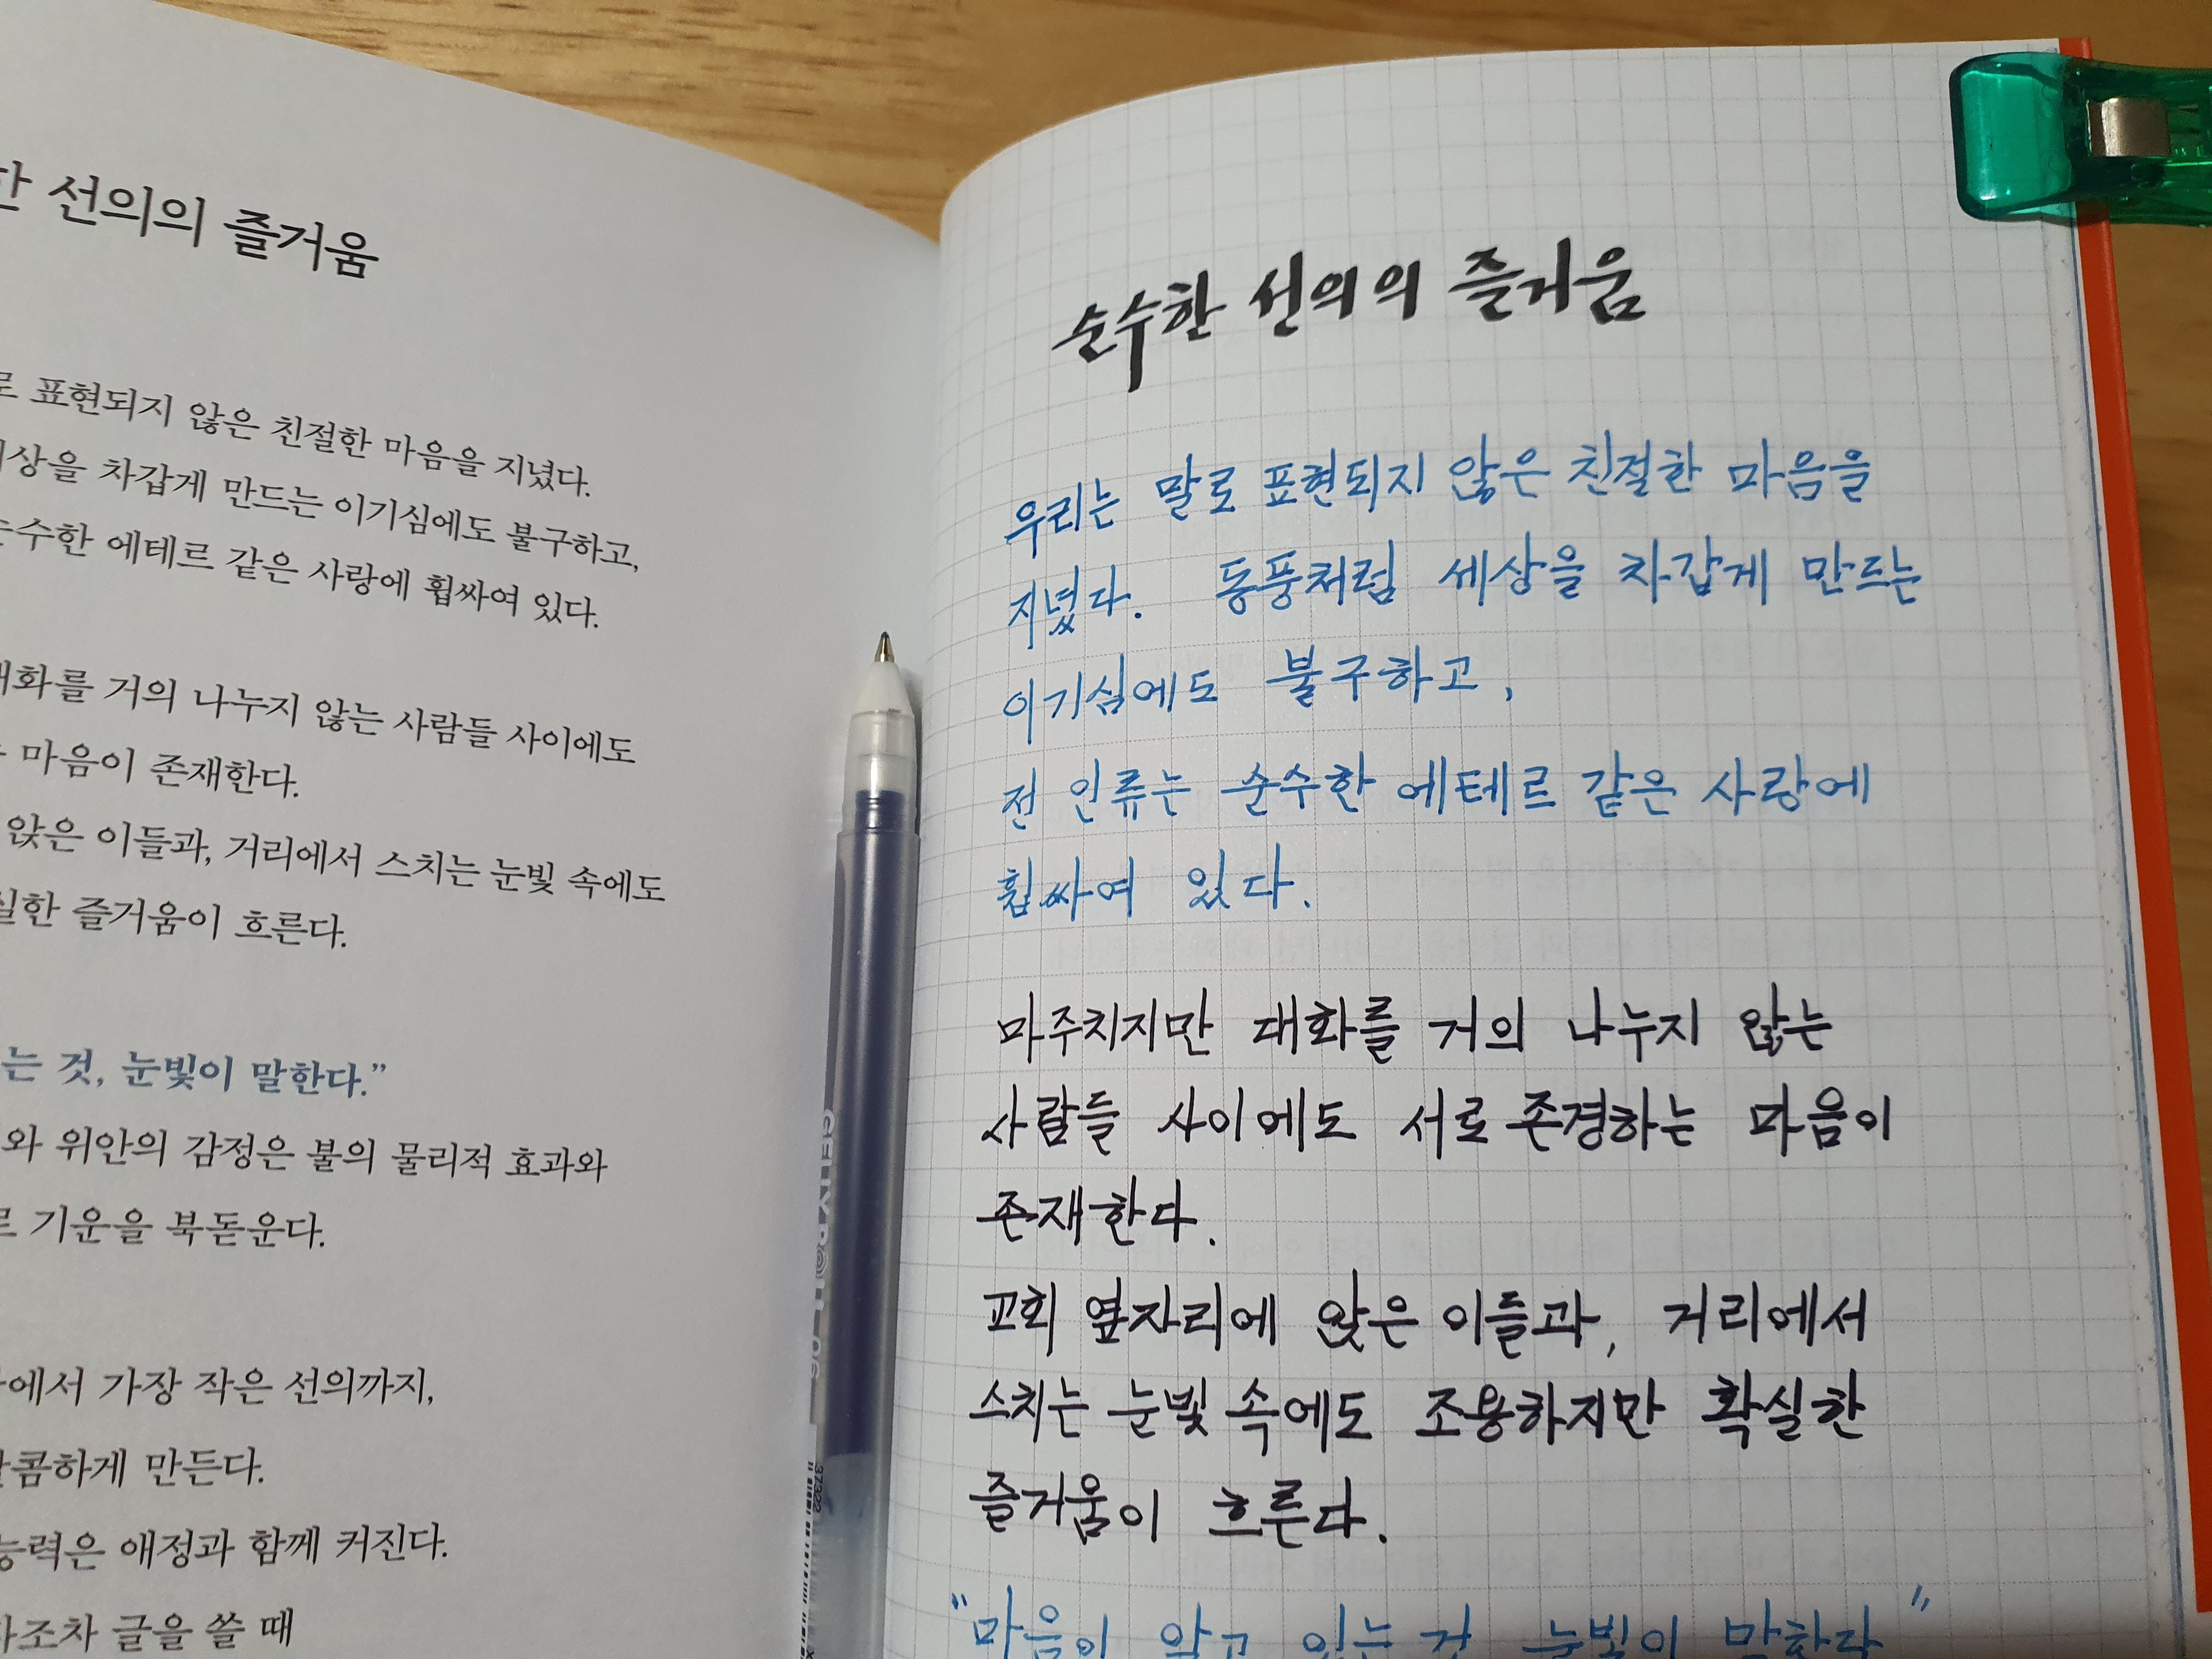 선의의 즐거움
표현되지 않은 친절한 마음을 지녔다.
차갑게 만드는 이기심에도 불구하고,
에테르 같은 사랑에 휩싸여 있다.
거의 나누지 않는 사람들 사이에도
마음이 존재한다.
앉은 이들과, 거리에서 스치는 눈빛 속에도
즐거움이 흐른다.
는 것, 눈빛이 말한다.”
와 위안의 감정은 불의 물리적 효과와
기운을 북돋운다.
에서 가장 작은 선의까지,
만든다.
애정과 함께 커진다.
글을 쓸 때
순수한 선의의 즐거움
우리는 말로 표현되지 않은 친절한 마음을
지녔다. 동풍처럼 세상을 차갑게 만드는
이기심에도 불구하고,
전 인류는 순수한 에테르 같은 사랑에
휩싸여 있다.
마주치지만 대화를 거의 나누지 않는
사람들 사이에도 서로 존경하는 마음이
존재한다.
교회 옆자리에 앉은 이들과, 거리에서
스치는 눈빛 속에도 조용하지만 확실한
즐거움이 흐른다.
"마음이 알고 있는 것 눈빛이 말한다"